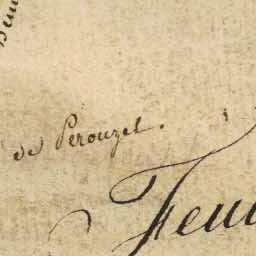 de Perouzel.
Feui